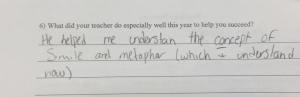 6) What did your teacher do especially well this year to help you succeed?
He helped me understan the concept of
Smile and metaphor (which I understand
now)